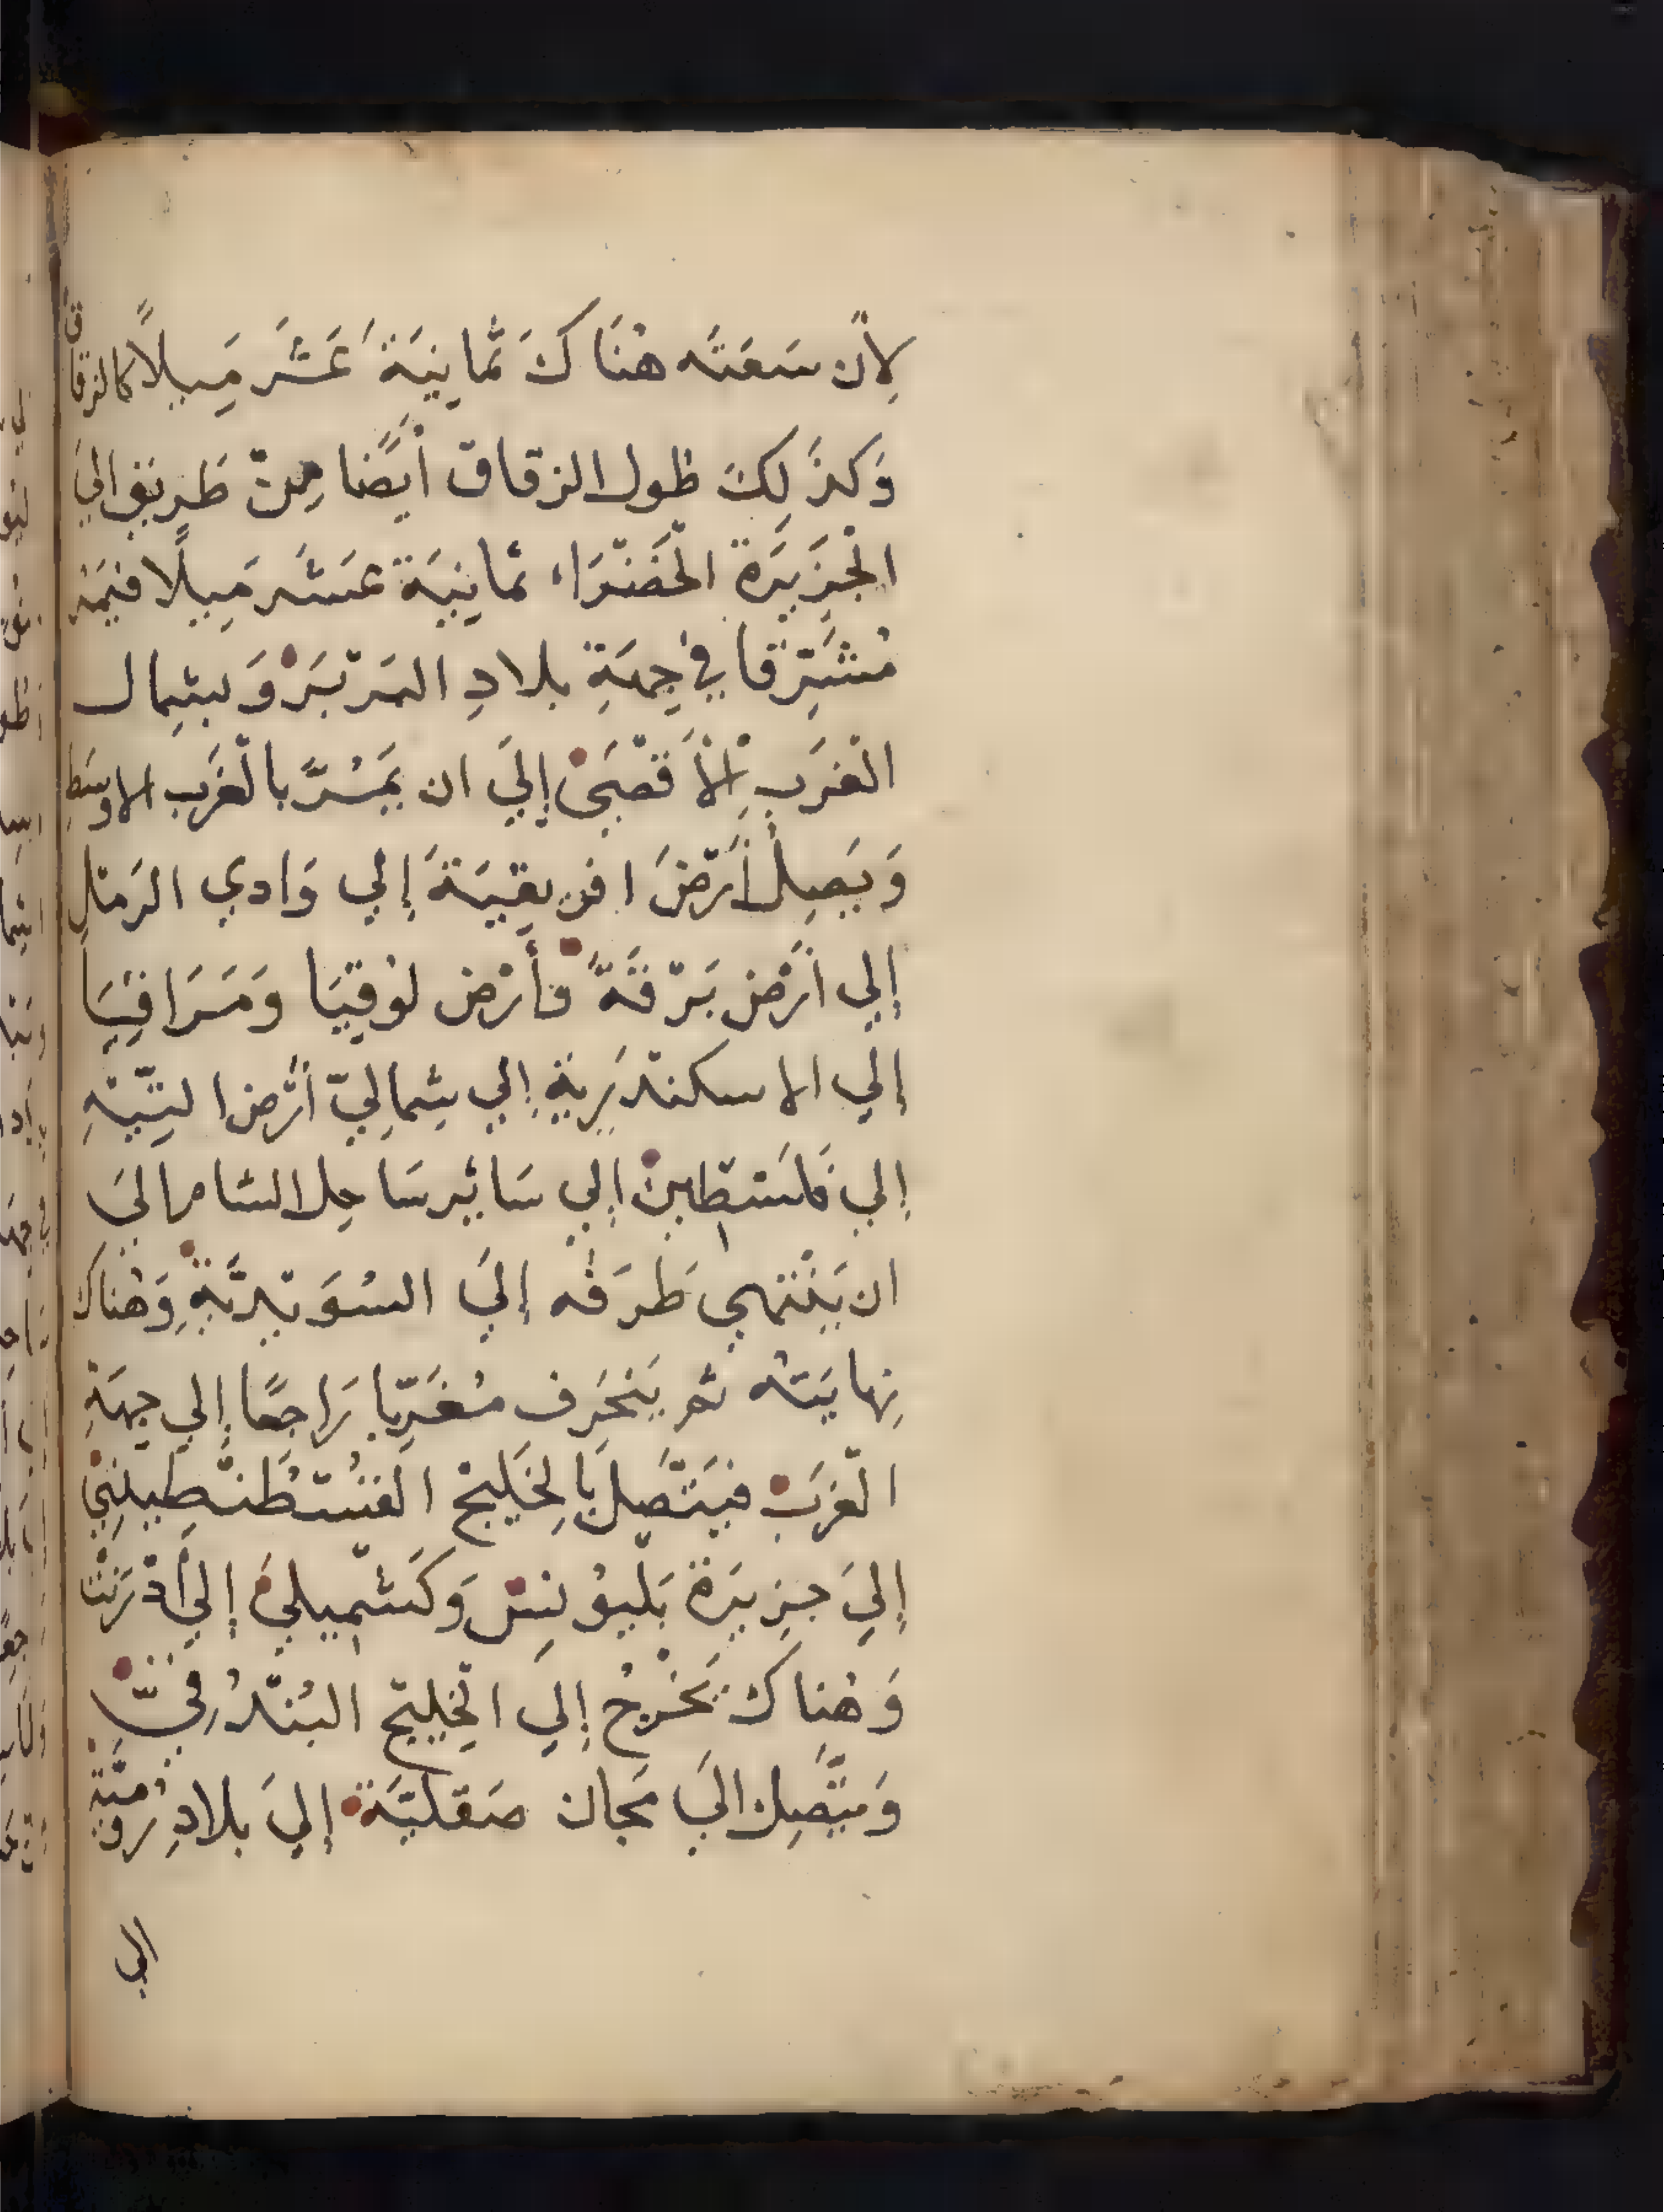 لِأن سَعَتَه هُنَاكَ ثمانِيَةَ عَشَرَ مِيلًا كالزقاق
وَكذَلِكَ طول الزقاق أيضًا مِنْ طَرِيف إليَ
الْجَزِيَرَة الْخَضْرَاء ثمانِيَة عَشَر مِيلًا فيَمُر
مُشَرِقا في جِهَةِ بلادِ البَرْبَرْ وَبشِمال
الْغَرَبِ الْأَقْصَيْ إليَ ان يَمُرَّ بالْغَرب الاوسَطِ
وَيَصِل أرْضَ افريقِيَةَ إلي وَادي الرَمْلِ
إلي أرْض بَرْقَةَ فأرْض لوْقِيَا وَمَرَاقِيَا
إلي الاسكنْدَرِيةِ إلي شِمالِيّ أرْض التِيّهِ
إلي فَلسْطِينْ إلي سَائِر سَاحِل الشام اليَ
ان يَنْتَهي طَرَفُه إليَ السُوَيْدِيَّةِ وَهُناك
نِهايَتَهُ ثم يَنْحَرف مُغَرِّبا رَاجعًا إلي جِهَةِ
الْغرَب فيَتَّصِل بَالخَلِيْج الْقُسْطَنْطِيِنيْ
إليَ جزِيَرة بَليوُنِسْ وَكَشْمِيلي إليَ أذْرَنْتْ
وَهُناكَ يَخْرجُ إلي الخِلِيْج البُنْدُقِيّ
وَيَتَّصِل اليَ مَجان صَقَلِيَّة إليَ بلادِ رومِيَّة
الي